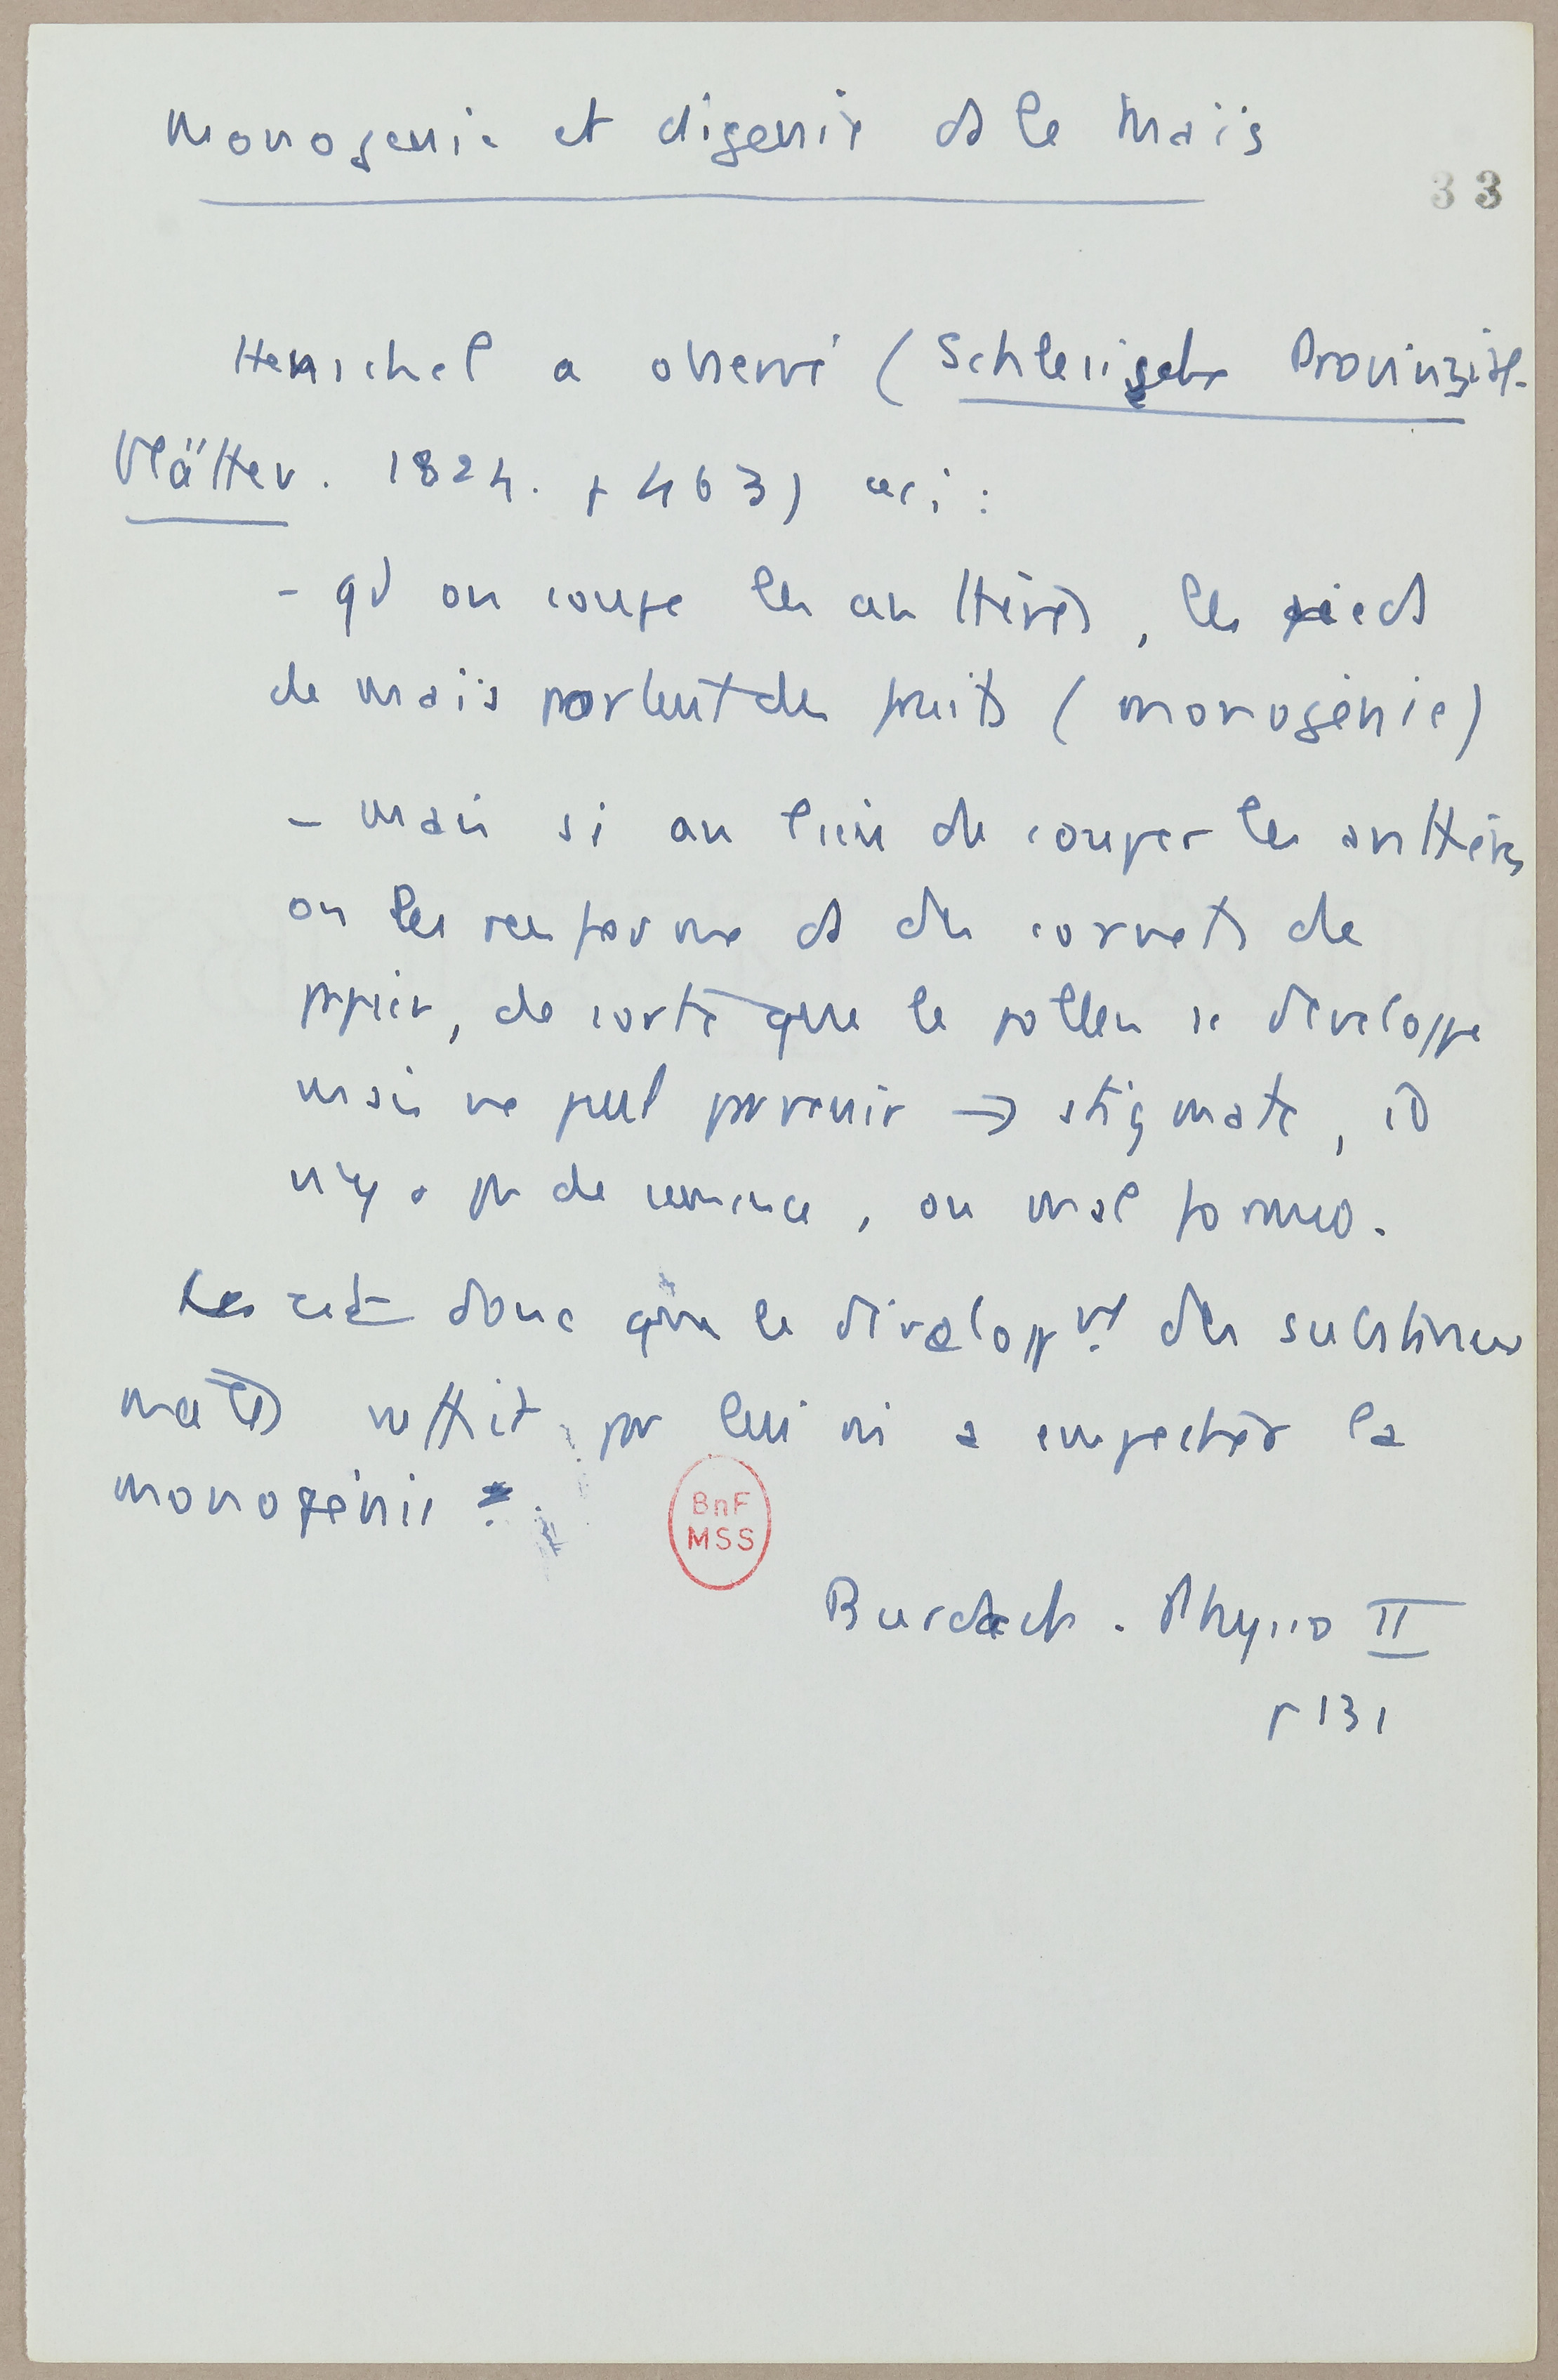 Monogenie et digenie ds le Maïs
33
Henschel a observé (Schlesische Provinzial-
blätter. 1824. p 463) ceci :
- qd on coupe les anthères, les pieds
de maïs portent des fruits (monogénie)
- mais si au lieu de couper les anthères
on les renferme ds des cornets de
papier, de sorte que le pollen se développe
mais ne peut parvenir → stigmate, il
n'y a pas de semence, ou mal formée.
donc que le développt des substances
mâles suffit par lui à empêcher la
monogénie.
BnF
MSS
Burdach. Physio II
p 131